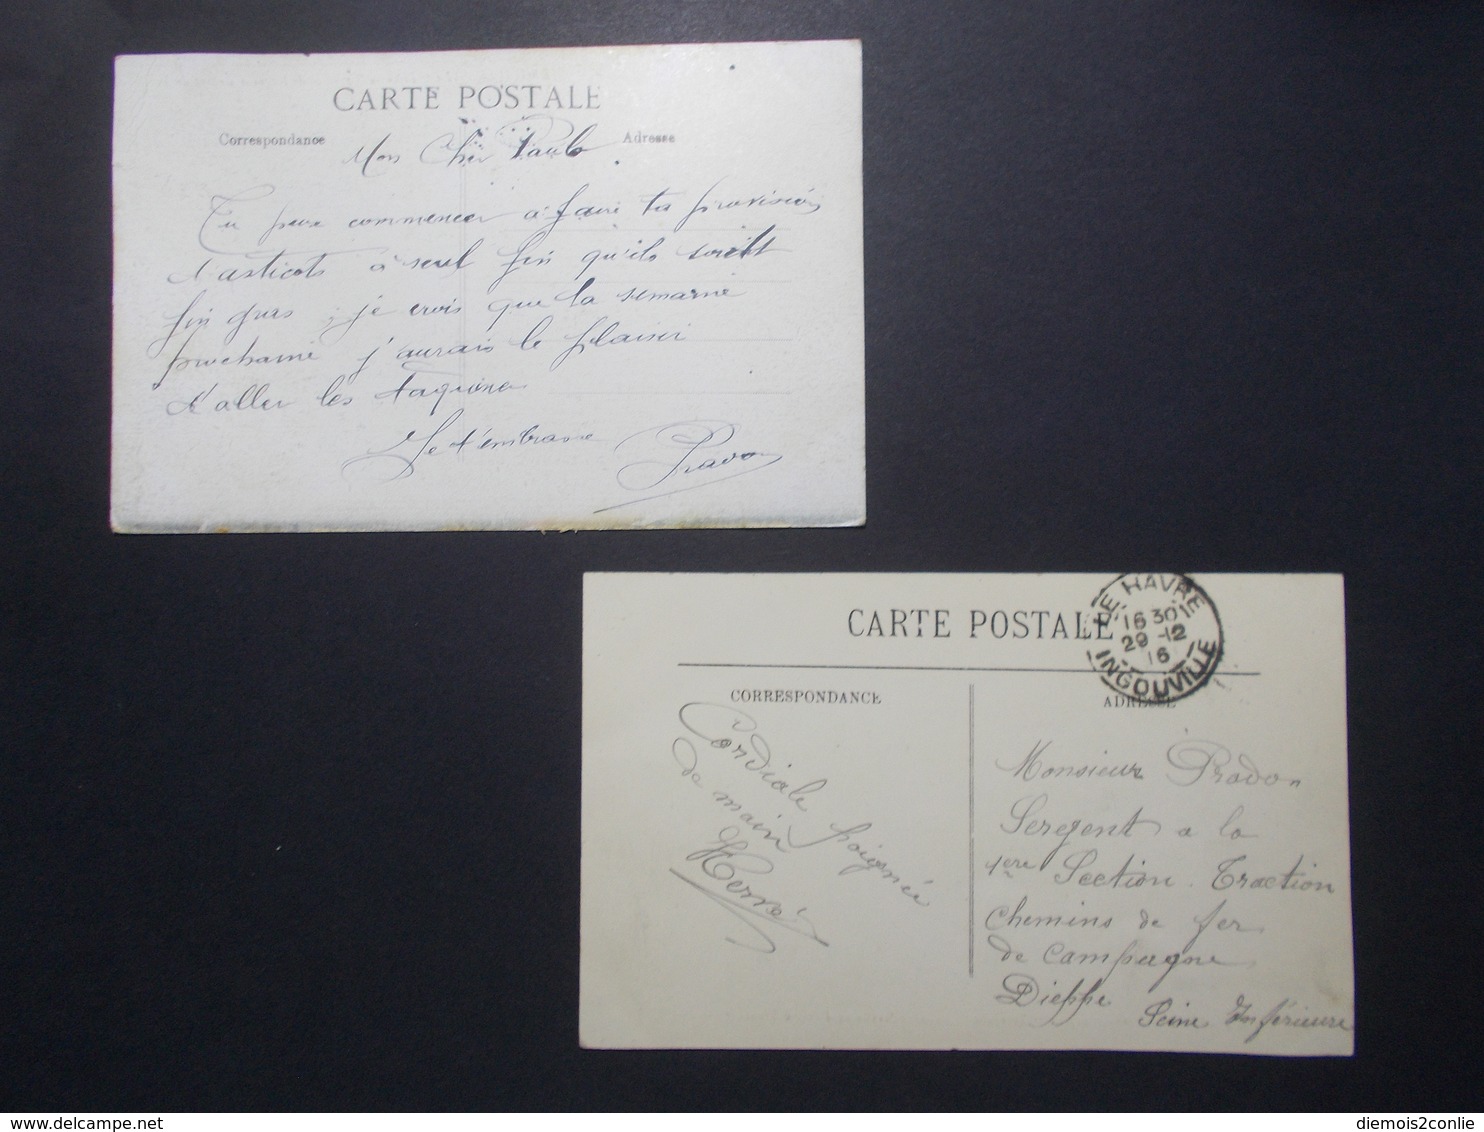 CARTE POSTALE
Correspondance
Adresse
Mon Cher Paul
Tu peux commencer à faire ta provision
d'asticots à seul fin qu'ils soient
fin gras ; je crois que la semaine
prochaine j'aurais le plaisir
d'aller les taquiner
Je t'embrasse
Pradon
CARTE POSTALE
LE HAVRE
16 30
29 -12
16
INGOUVILLE
CORRESPONDANCE
ADRESSE
Cordiale poignée
de main
Hervé
Monsieur Pradon
Seregent a la
1ere Section Traction
Chemins de fer
de campagne
Dieppe
Seine Inférieure
diemois2conlie